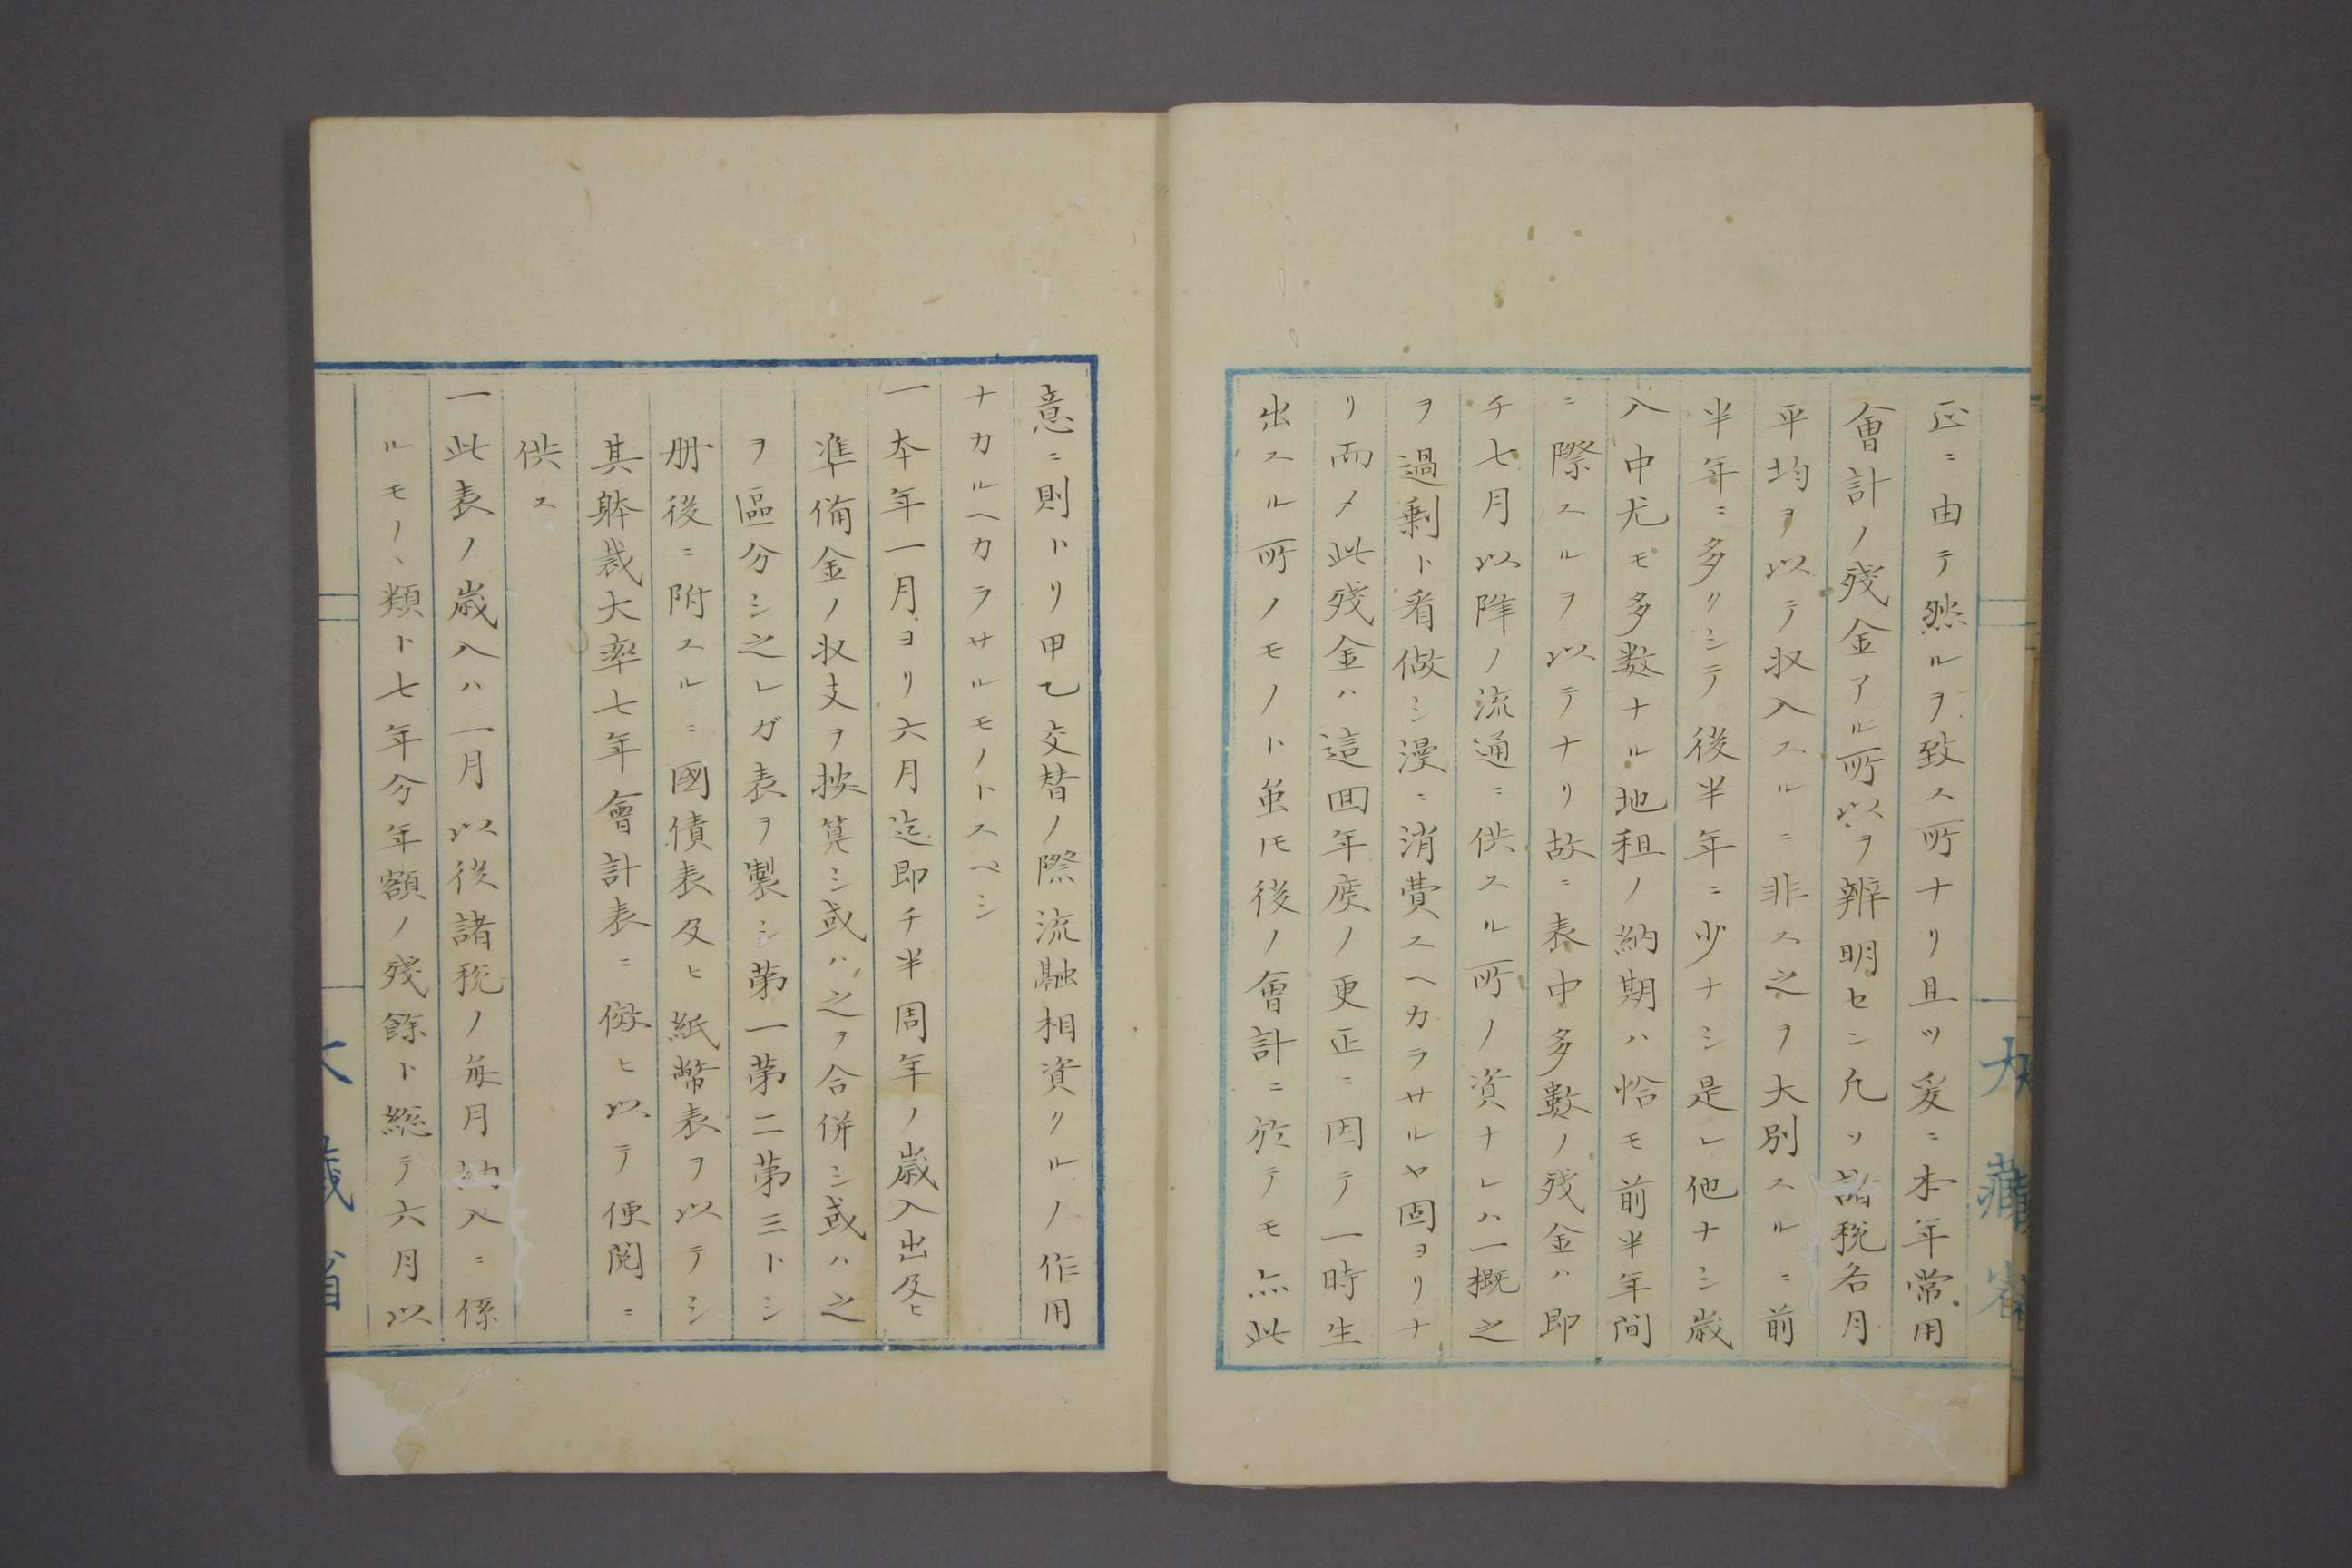 正ニ由テ然ルヲ致ス所ナリ且ツ爰ニ本年常用
會計ノ殘金アル所以ヲ辨明セン凡ソ諸税各月
平均ヲ以テ収入スルニ非ス之ヲ大別スルニ前
半年ニ多クシテ後半年ニ少ナシ是レ他ナシ歳
入中尤モ多数ナル地租ノ納期ハ恰モ前半年間
ニ際スルヲ以テナリ故ニ表中多數ノ残金ハ即
チ七月以降ノ流通ニ供スル所ノ資ナレハ一概之
ヲ過剰ト看做シ漫ニ消費スヘカラサルヤ固ヨリナ
リ而〆此殘金ハ這回年度ノ更正ニ因テ一時生
出スル所ノモノト虽𪜈後ノ會計ニ於テモ亦此
意ニ則トリ甲乙交替ノ際流融相資クルノ作用
ナカルヘカラサルモノトスベシ
一本年一月ヨリ六月迄即チ半周年ノ歳入出及ヒ
準備金ノ収支ヲ按算シ或ハ之ヲ合併シ或ハ之
ヲ區分シ之レガ表ヲ製シ第一第二第三トシ
册後ニ附スルニ國債表及ヒ紙幣表ヲ以テシ
其躰裁大率七年會計表ニ傚ヒ以テ便閲ニ
供ス
一此表ノ歳入ハ一月以後諸税ノ毎月納入ニ係
ルモノヽ類ト七年分年額ノ殘餘ト総テ六月以
大藏省